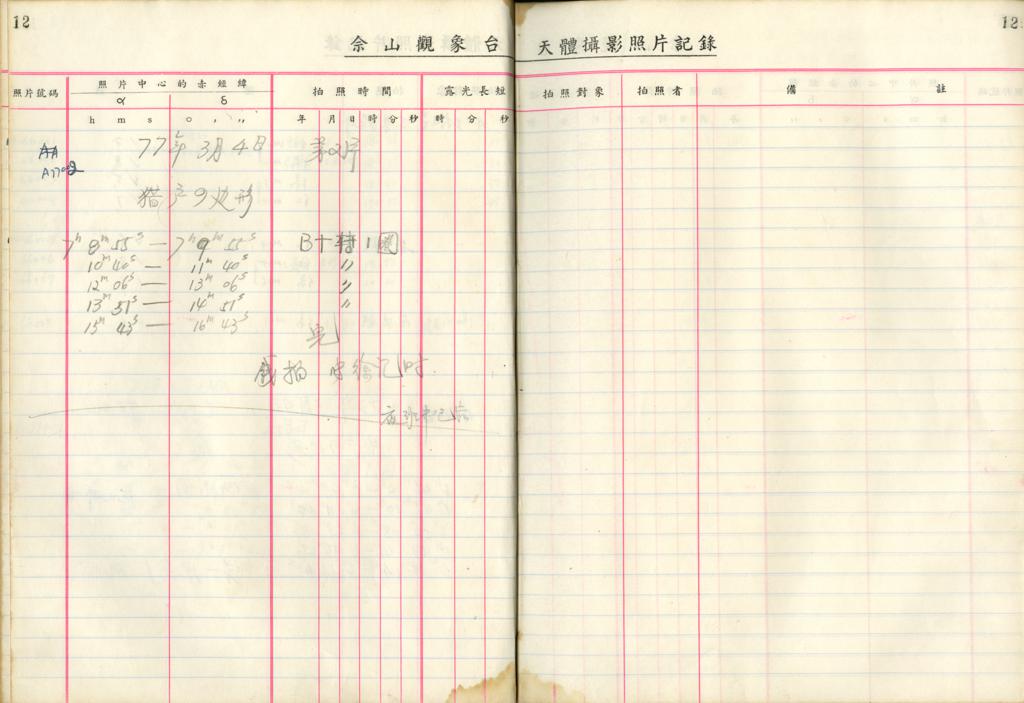 12
佘山觀象台 天體攝影照片記錄
12
照片號碼 照片中心的赤經緯 拍照時間 露光長短 拍照對象 拍照者 備註
α δ
h m s ° ′ ″ 年 月 日 時 分 秒 時 分 秒
AA 77年 3月 4日 第2片
A17002
猎户 9 边形
7h 8m 55s — 7h 9m 55s B十 1
10m 40s — 11m 40s 〃
12m 06s — 13m 06s 〃
13m 51s — 14m 51s 〃
15m 43s — 16m 43s
完
拍 徐 时